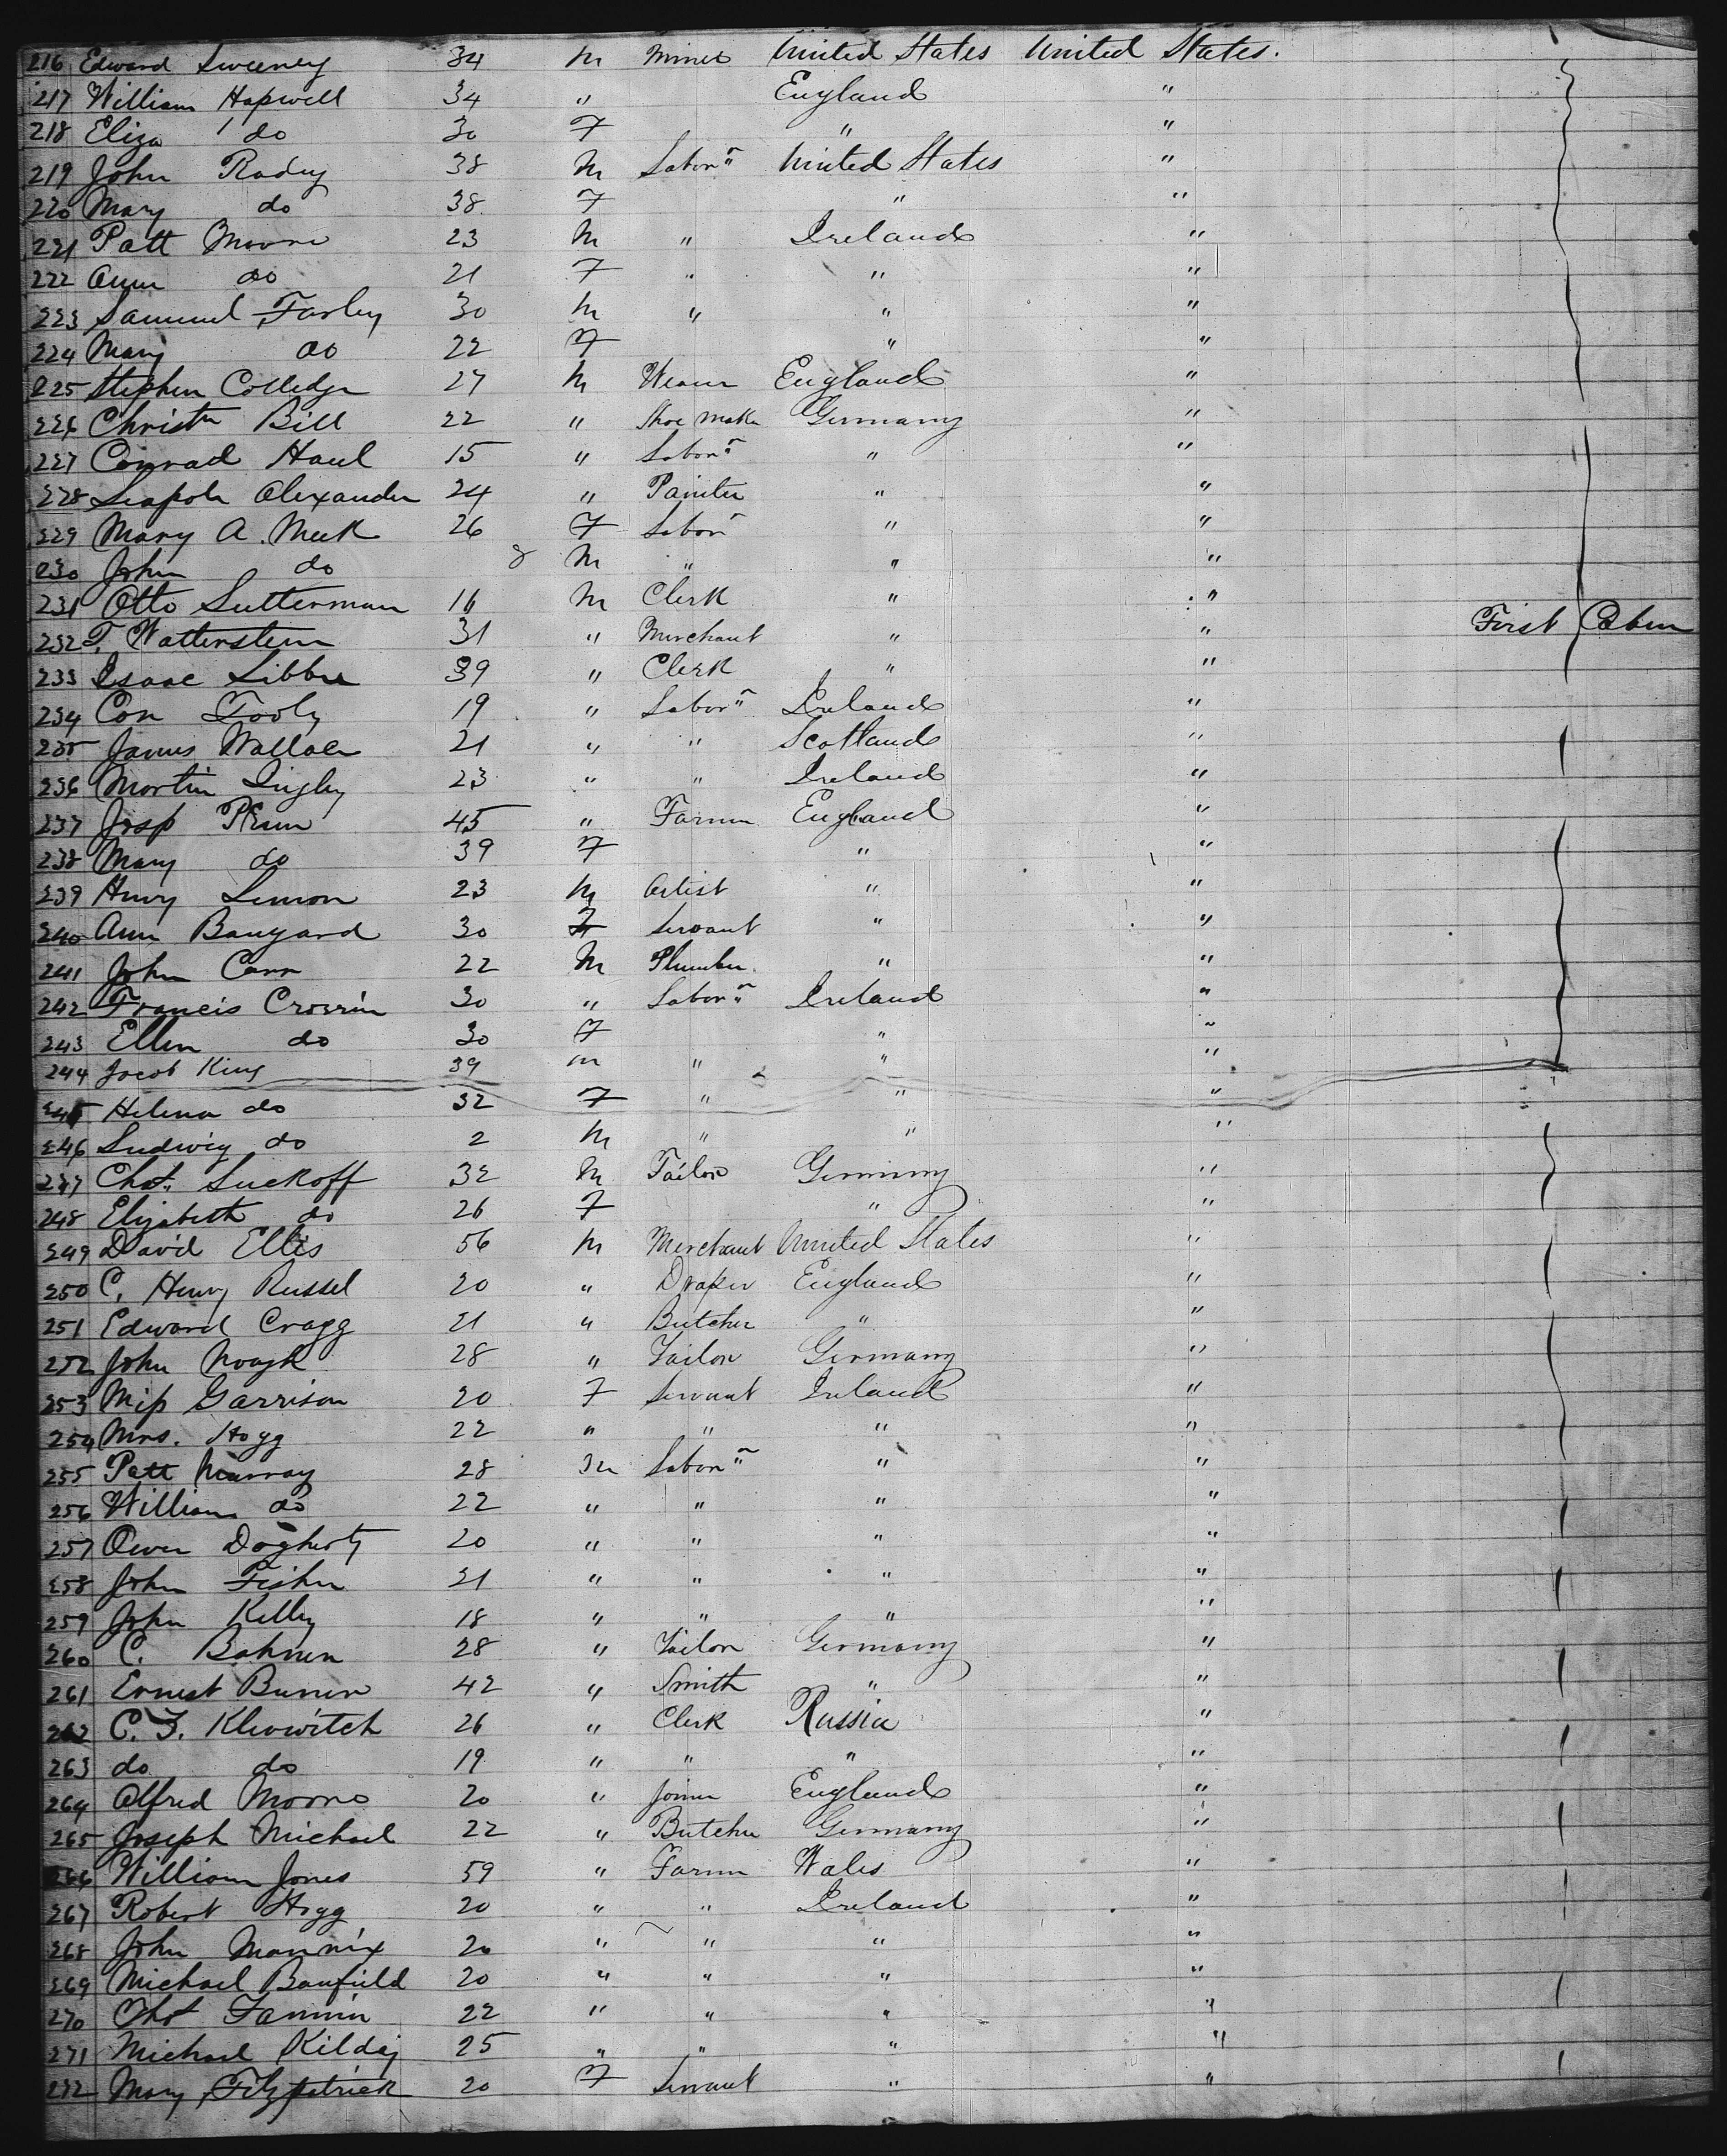 216 Edward Sweeney 34 M Miner United States United States.
217 William Hapwell 34 " England "
218 Eliza do 30 F " "
219 John Rady 38 M Labor" United States "
220 Mary do 38 F " "
221 Patt Moore 23 M " Ireland "
222 Ann do 21 F " " "
223 Samuel Farley 30 M " " "
224 Mary do 22 F " "
225 Stephen Colledge 27 M Weaver England "
226 Christn Bill 22 " Shoe Maker Germany "
227 Conrad Haul 15 " Labor" " "
228 Leapole Alexander 24 " Painter " "
229 Mary A. Meek 26 F Labor " "
230 John do 8 M " " "
231 Otto Sutterman 16 M Clerk " "
232 T. Watterstein 31 " Merchant " " First Cabin
233 Isaac Libbre 39 " Clerk " "
234 Con Fooly 19 " Labor" Ireland "
235 James Wallace 21 " " Scotland "
236 Martin Lingley 23 " " Ireland "
237 Josp 45 " Farmer England "
238 Mary do 39 F " "
239 Henry Lemon 23 M Artist " "
240 Ann Bangard 30 F Servant " "
241 John Carr 22 M Plumber " "
242 Francis Crossin 30 " Labor" Ireland "
243 Ellen do 30 F " "
244 Jacob King 39 m " " "
245 Helena do 32 F " " "
246 Ludwig do 2 M " " "
247 Chat. Suckoff 32 M Tailor Germany "
248 Elizabeth do 26 F " "
249 David Ellis 56 M Merchant United States "
250 C. Henry Russel 20 " Draper England "
251 Edward Cragg 21 " Butcher " "
252 John 28 " Tailor Germany "
253 Miss Garrison 20 F Servant Ireland "
254 Mrs. Hogg 22 " " " "
255 Patt Murray 28 M Labor" " "
256 William do 22 " " " "
257 Owen Dogherty 20 " " " "
258 John Fisher 21 " " " "
259 John Kelly 18 " " " "
260 C. Bohnen 28 " Tailor Germany "
261 Ernest Burren 42 " Smith " "
262 C. F. Klevwitch 26 " Clerk Russia "
263 do do 19 " " " "
264 Alfred Moore 20 " Joiner England "
265 Joseph Michael 22 " Butcher Germany "
266 William Jones 59 " Farmer Wales "
267 Robert Hogg 20 " " Ireland "
268 John Mannix 20 " " " "
269 Michael Banfield 20 " " " "
270 Thos Fannin 22 " " " "
271 Michael Kilday 25 " " " "
272 Mary Fitzpatrick 20 F Servant " "